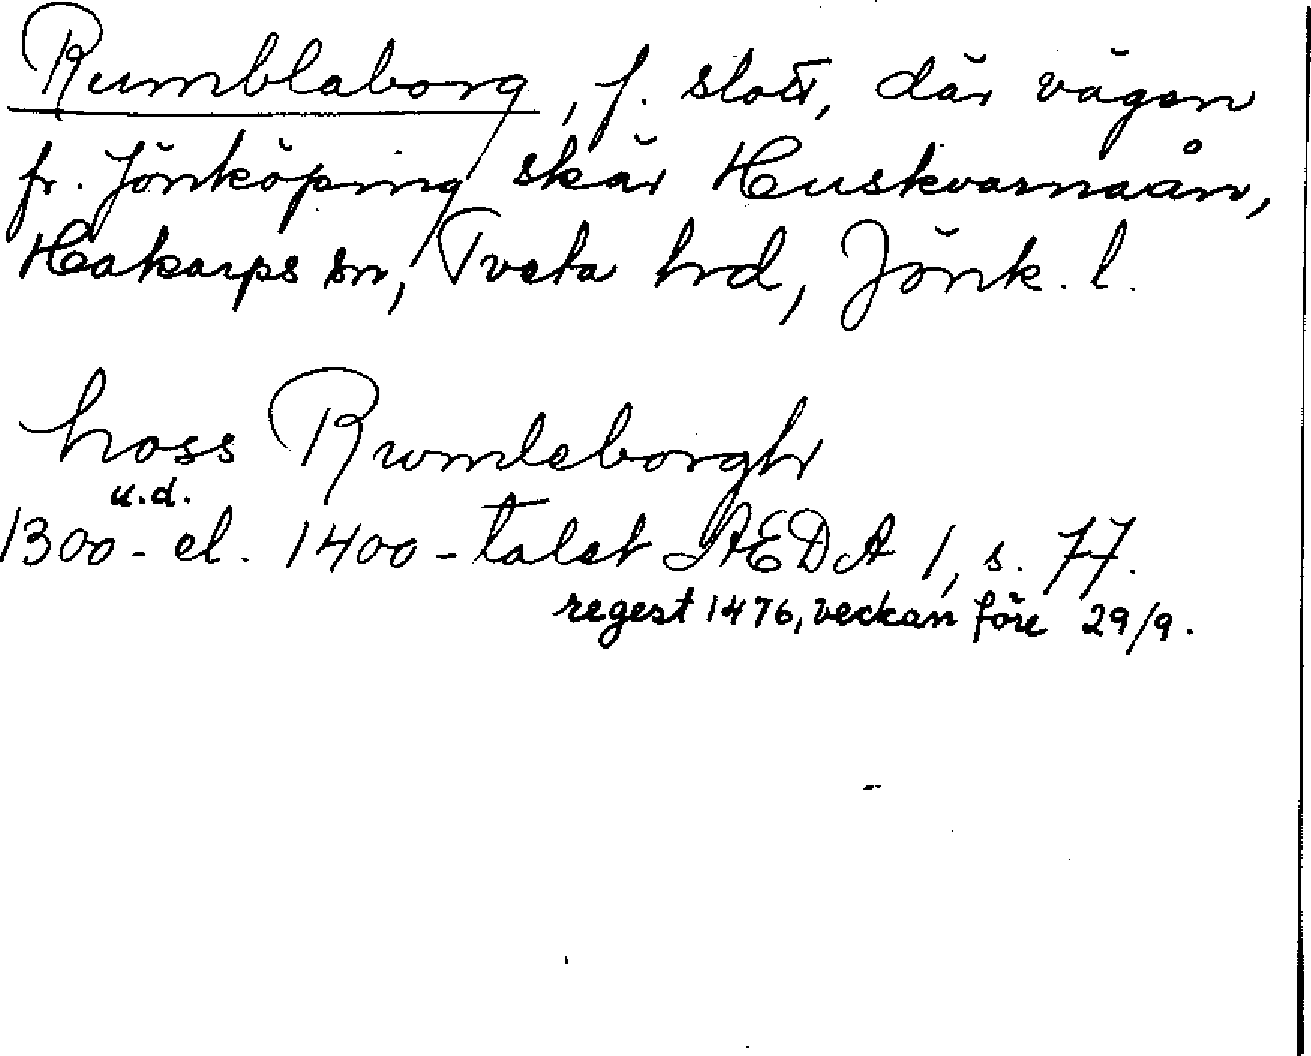 Rumblaborg, f. slott, där vägen
fr. Jönköping skär Huskvarnaån,
Hakarps sn, Tveta hrd, Jönk. l.
hoss Rumleborgh
u.d.
1300- el. 1400-talet ÄEDA 1, s. 77.
regest 1476, veckan före 29/9.